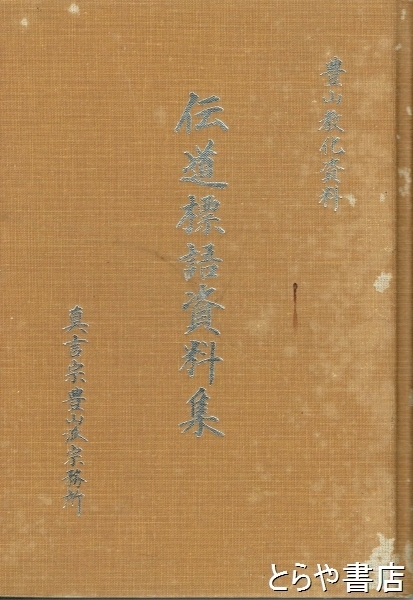 豊山教化資料
伝道標語資料集
真言宗豊山派宗務所
とらや書店